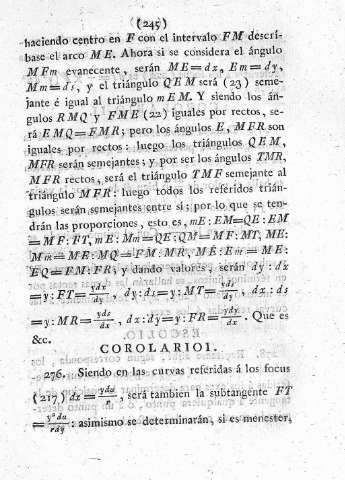 (245)
haciendo centro en F con el intervalo FM descri-
base el arco ME. Ahora si se considera el ángulo
MFm evanecente, serán ME=dx, Em=dy,
Mm=ds, y el triángulo QEM será (23) seme-
jante é igual al triángulo mEM. Y siendo los án-
gulos RMQ y FME (22) iguales por rectos, se-
rá EMQ=FMR; pero los ángulos E, MFR son
iguales por rectos: luego los triángulos QEM,
MFR serán semejantes; y por ser los ángulos TMR,
MFR rectos, será el triángulo TMF semejante al
triángulo MFR: luego todos los referidos trián-
gulos serán semejantes entre sí; por lo que se ten-
drán las proporciones, esto es, mE: EM=QE: EM
=MF: FT, mE: Mm=QE: QM=MF: MT, ME:
Mm=ME: MQ=FM: MR, ME: Em=ME:
EQ=FM: FR; y dando valores, serán dy: dx
=y: FT=ydx/dy, dy: ds=y: MT=yds/dy, dx: ds
=y: MR=yds/dx, dx: dy=y: FR=ydy/dx. Que es
&c.
COROLARIO I.
276. Siendo en las curvas referidas á los focus
(217) dx=ydu/r, será tambien la subtangente FT
=y²du/rdy: asimismo se determinarán, si es menester,